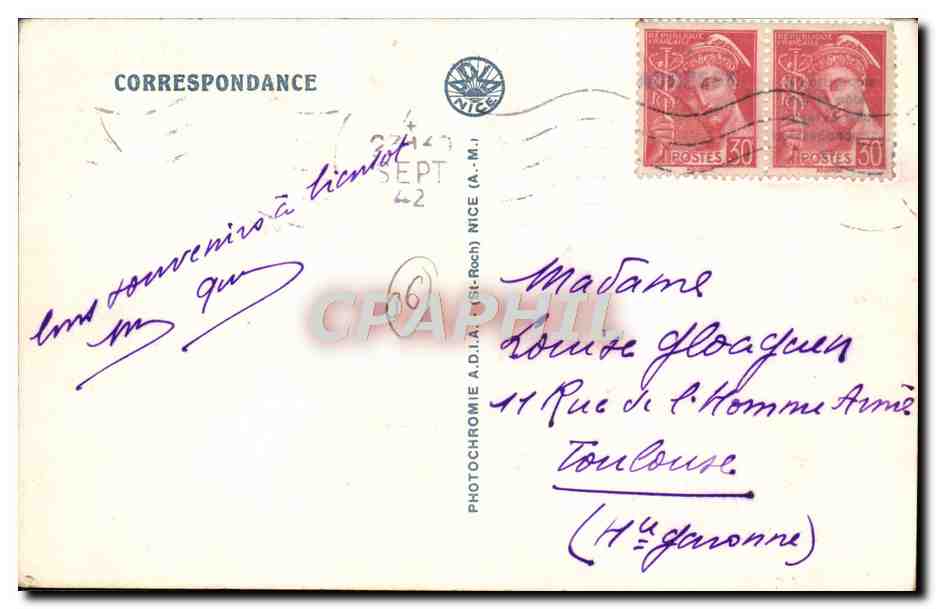 CORRESPONDANCE
ADIA
NICE
RÉPUBLIQUE FRANÇAISE
POSTES 30
RÉPUBLIQUE FRANÇAISE
POSTES 30
SEPT
42
souvenirs à bientôt
66
CPAPHIL
PHOTOCHROMIE A.D.I.A. (St-Roch) NICE (A.-M.)
Madame
Louise Gloaguen
11 Rue de l'Homme Armé
Toulouse
(Hte Garonne)